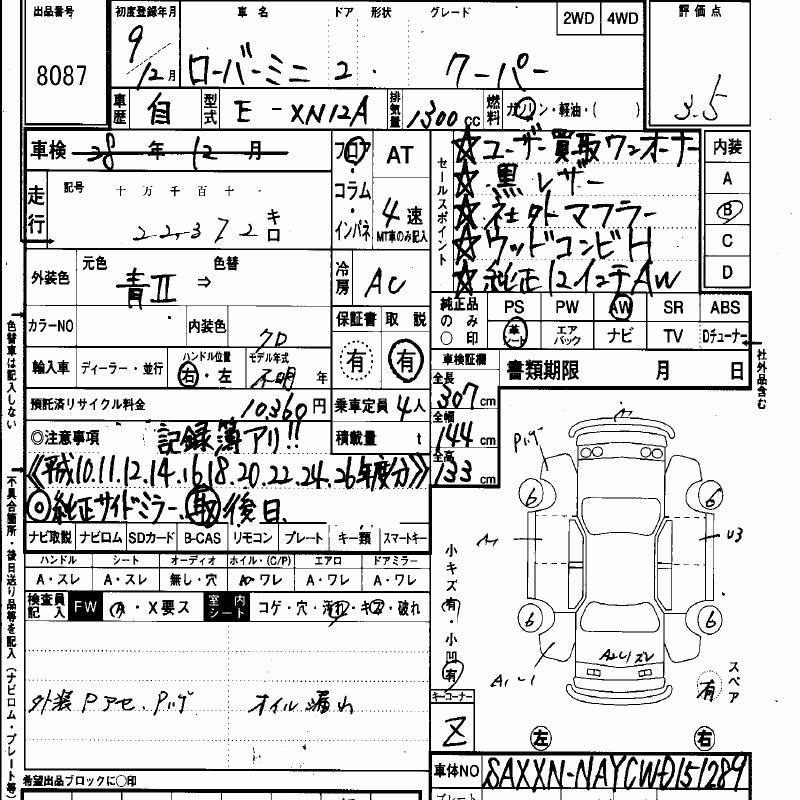 出品番号 初度登録年月 車名 ドア 形状 グレード 2WD 4WD 評価点
8087 9/12月 ローバーミニ 2 クーパー 3.5
車歴 自 型式 E-XN12A 排気量 1300cc 燃料 ガソリン・軽油・( )
車検 28年12月 フロア・コラム・インパネ AT 4速 MT車のみ記入
走行 記号 十万千百十・
22,372キロ
セールスポイント
☆ユーザー買取ワンオーナー
☆黒レザー
☆社外マフラー
☆ウッドコンビH
☆純正12インチAW
内装
A
B
C
D
外装色 元色 青II ⇒ 色替 冷房 AC
カラーNO 内装色 クロ 保証書 取説
有 有
純正品のみ○印 PS PW AW SR ABS
革シート エアバック ナビ TV Dチューナー
社外品含む
輸入車 ディーラー・並行 ハンドル位置 右・左 モデル年式 不明年
車検証欄 書類期限 月 日
全長 307cm
全幅 144cm
全高 133cm
預託済リサイクル料金 10,360円 乗車定員 4人
◎注意事項 記録簿アリ!! 積載量 t
《平成10.11.12.14.16.18.20.22.24.26年度分》
◎純正サイドミラー、取後日
ナビ取説 ナビロム SDカード B-CAS リモコン プレート キー類 スマートキー
ハンドル シート オーディオ ホイル・(C/P) エアロ ドアミラー
A・スレ A・スレ 無し・穴 A・ワレ A・ワレ A・ワレ
検査員記入 FW A・X要ス 室内シート コゲ・穴・汚れ・キズ・破れ
外装 Pアセ、Pハゲ オイル漏れ
希望出品ブロックに○印
色替車は記入しない
不具合箇所・後日送り品等を記入(ナビロム・プレート等)
小キズ有・小凹有
Pハゲ
6 6
U3
6 6
スペア 有
キーコーナー
Z
左 右
車体NO SAXXN-NAYCWD151289
プレート